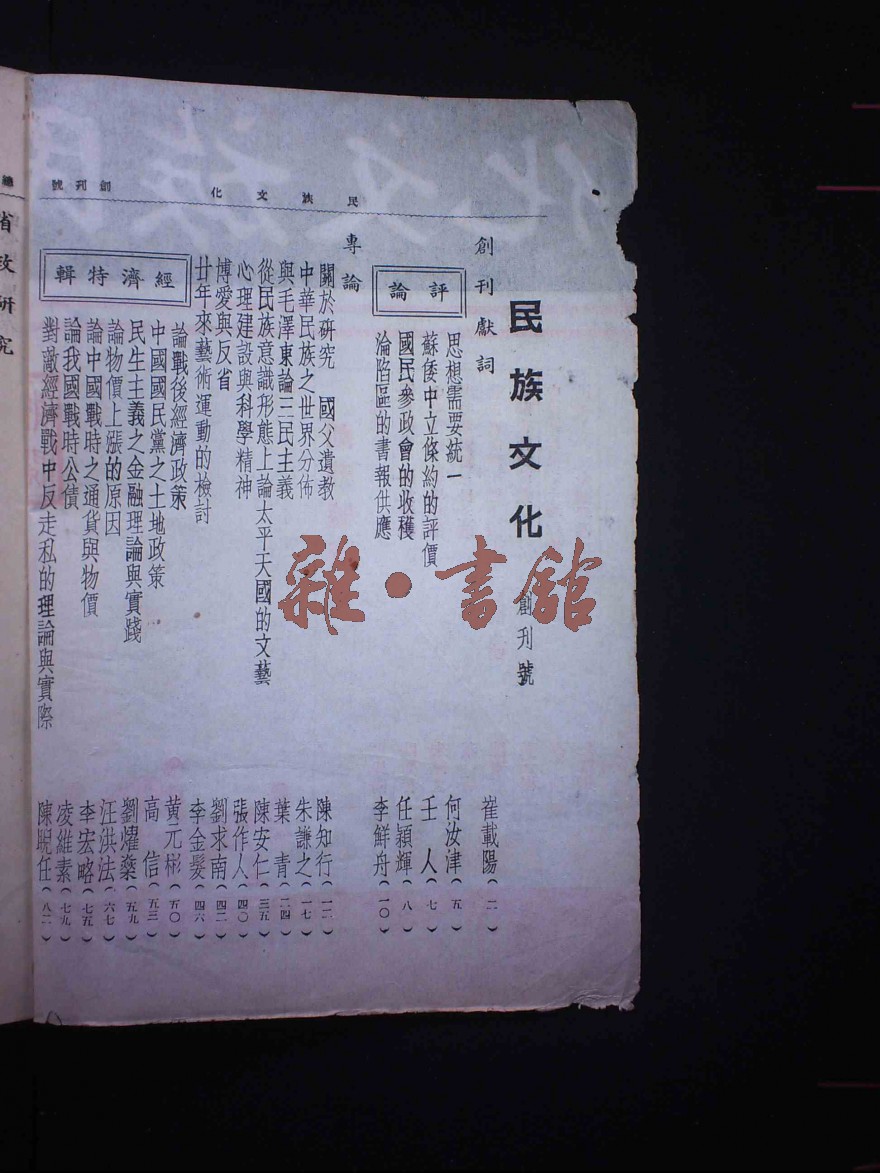 民族文化 創刊號
民族文化
創刊號
創刊獻詞 崔載陽(二)
評論
思想需要統一 何汝津(五)
蘇倭中立條約的評價 王人(七)
國民參政會的收穫 任穎輝(八)
淪陷區的書報供應 李鮮舟(一〇)
專論
關於研究 國父遺教 陳知行(一二)
中華民族之世界分佈 朱謙之(一七)
與毛澤東論三民主義 葉青(二四)
從民族意識形態上論太平天國的文藝 陳安仁(三五)
心理建設與科學精神 張作人(四〇)
博愛與反省 劉求南(四二)
廿年來藝術運動的檢討 李金髮(四六)
經濟特輯
論戰後經濟政策 黃元彬(五〇)
中國國民黨之土地政策 高信(五三)
民生主義之金融理論與實踐 劉燿燊(五九)
論物價上漲的原因 汪洪法(六七)
論中國戰時之通貨與物價 李宏略(七五)
論我國戰時公債 凌維素(七九)
對敵經濟戰中反走私的理論與實際 陳晲任(八二)
省政研究
雜·書館